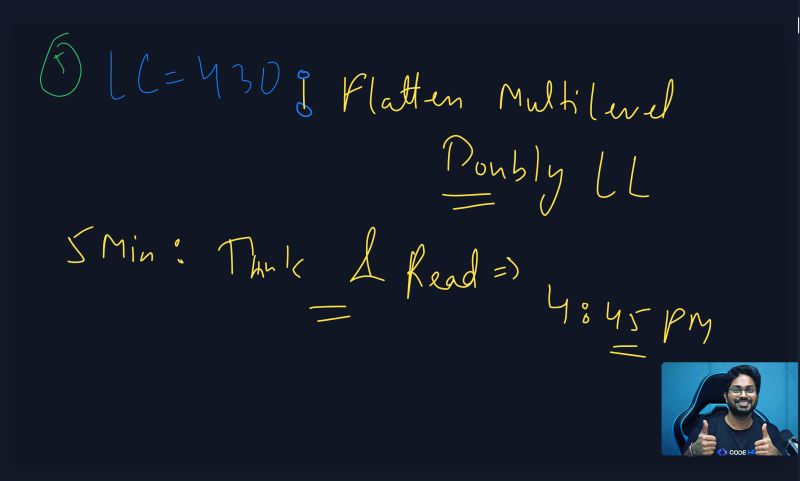 5 LC = 430 : Flatten Multilevel
Doubly LL
5 Min : Think & Read =>
4:45 PM
CODE